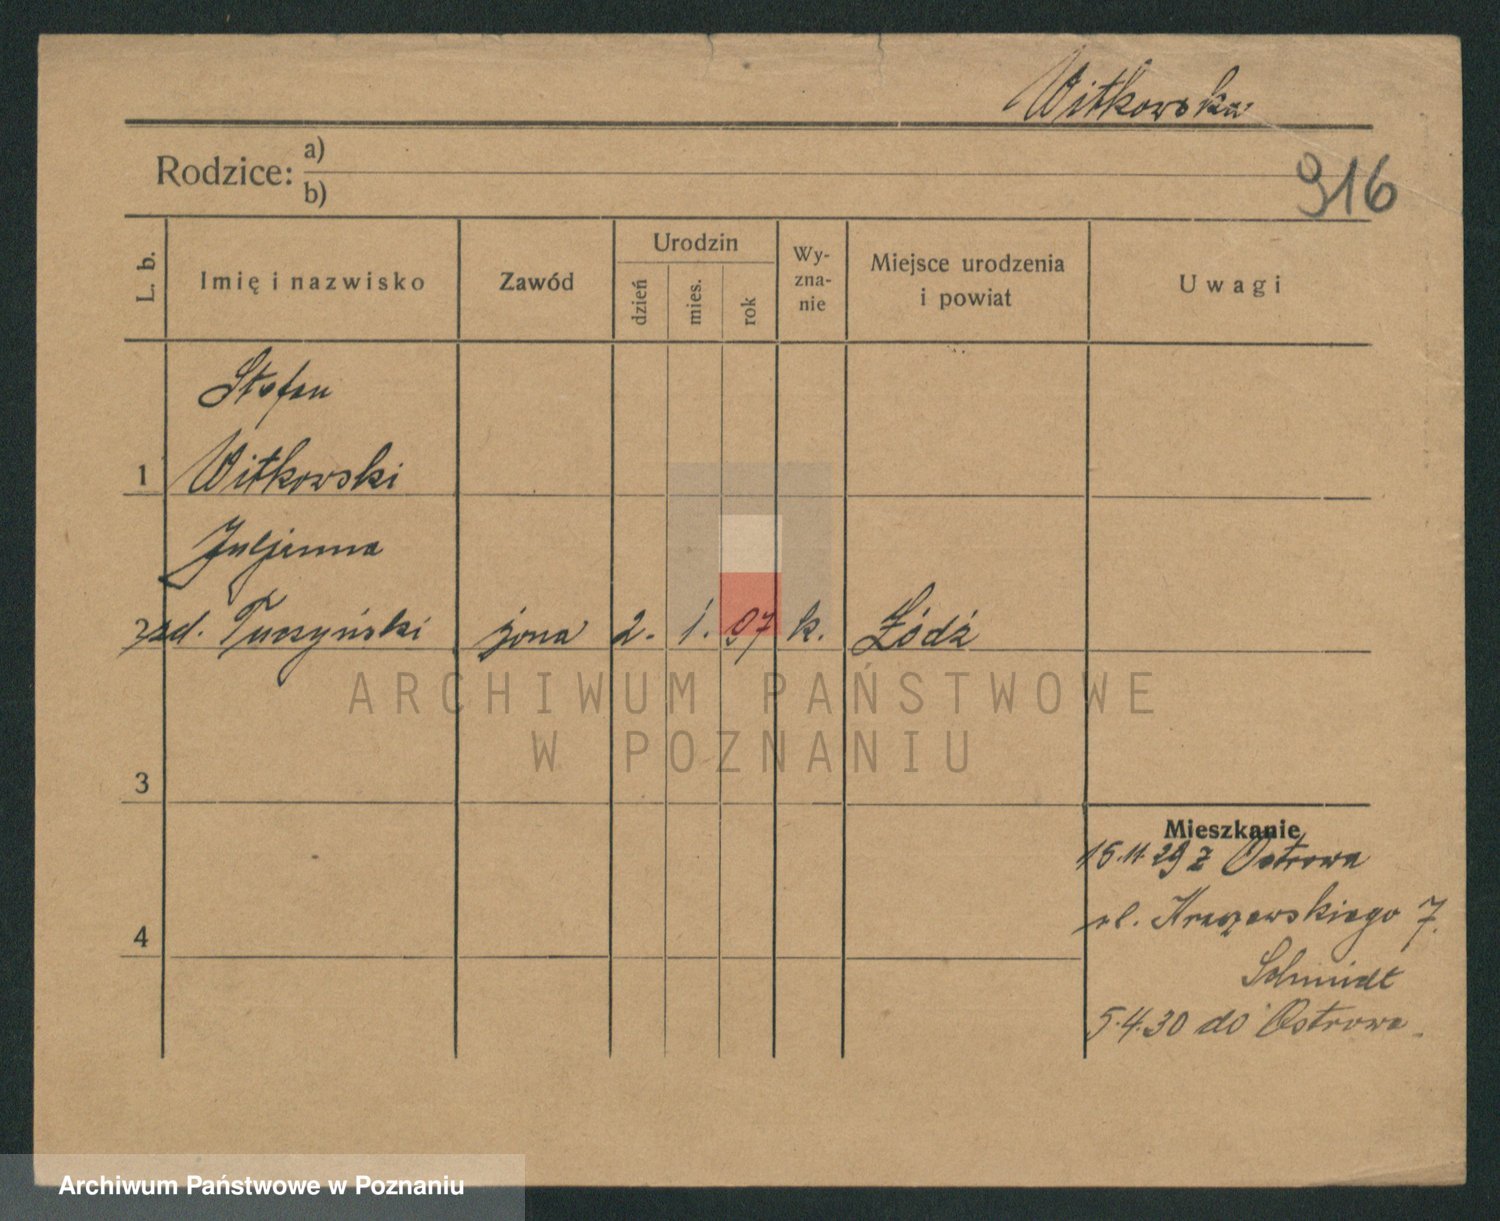 Witkowska
Rodzice: a)
b)
916
L. b.
Imię i nazwisko
Zawód
Urodzin
dzień
mies.
rok
Wy-
zna-
nie
Miejsce urodzenia
i powiat
Uwagi
Stefan
1 Witkowski
Juljanna
2 zd. Tuszyński żona 2. 1. 97 k. Łódź
ARCHIWUM PAŃSTWOWE
W POZNANIU
3
Mieszkanie
15.11.29 z Ostrowa
ul. Kraszewskiego 7.
Schmidt
4
5.4.30 do Ostrowa
Archiwum Państwowe w Poznaniu